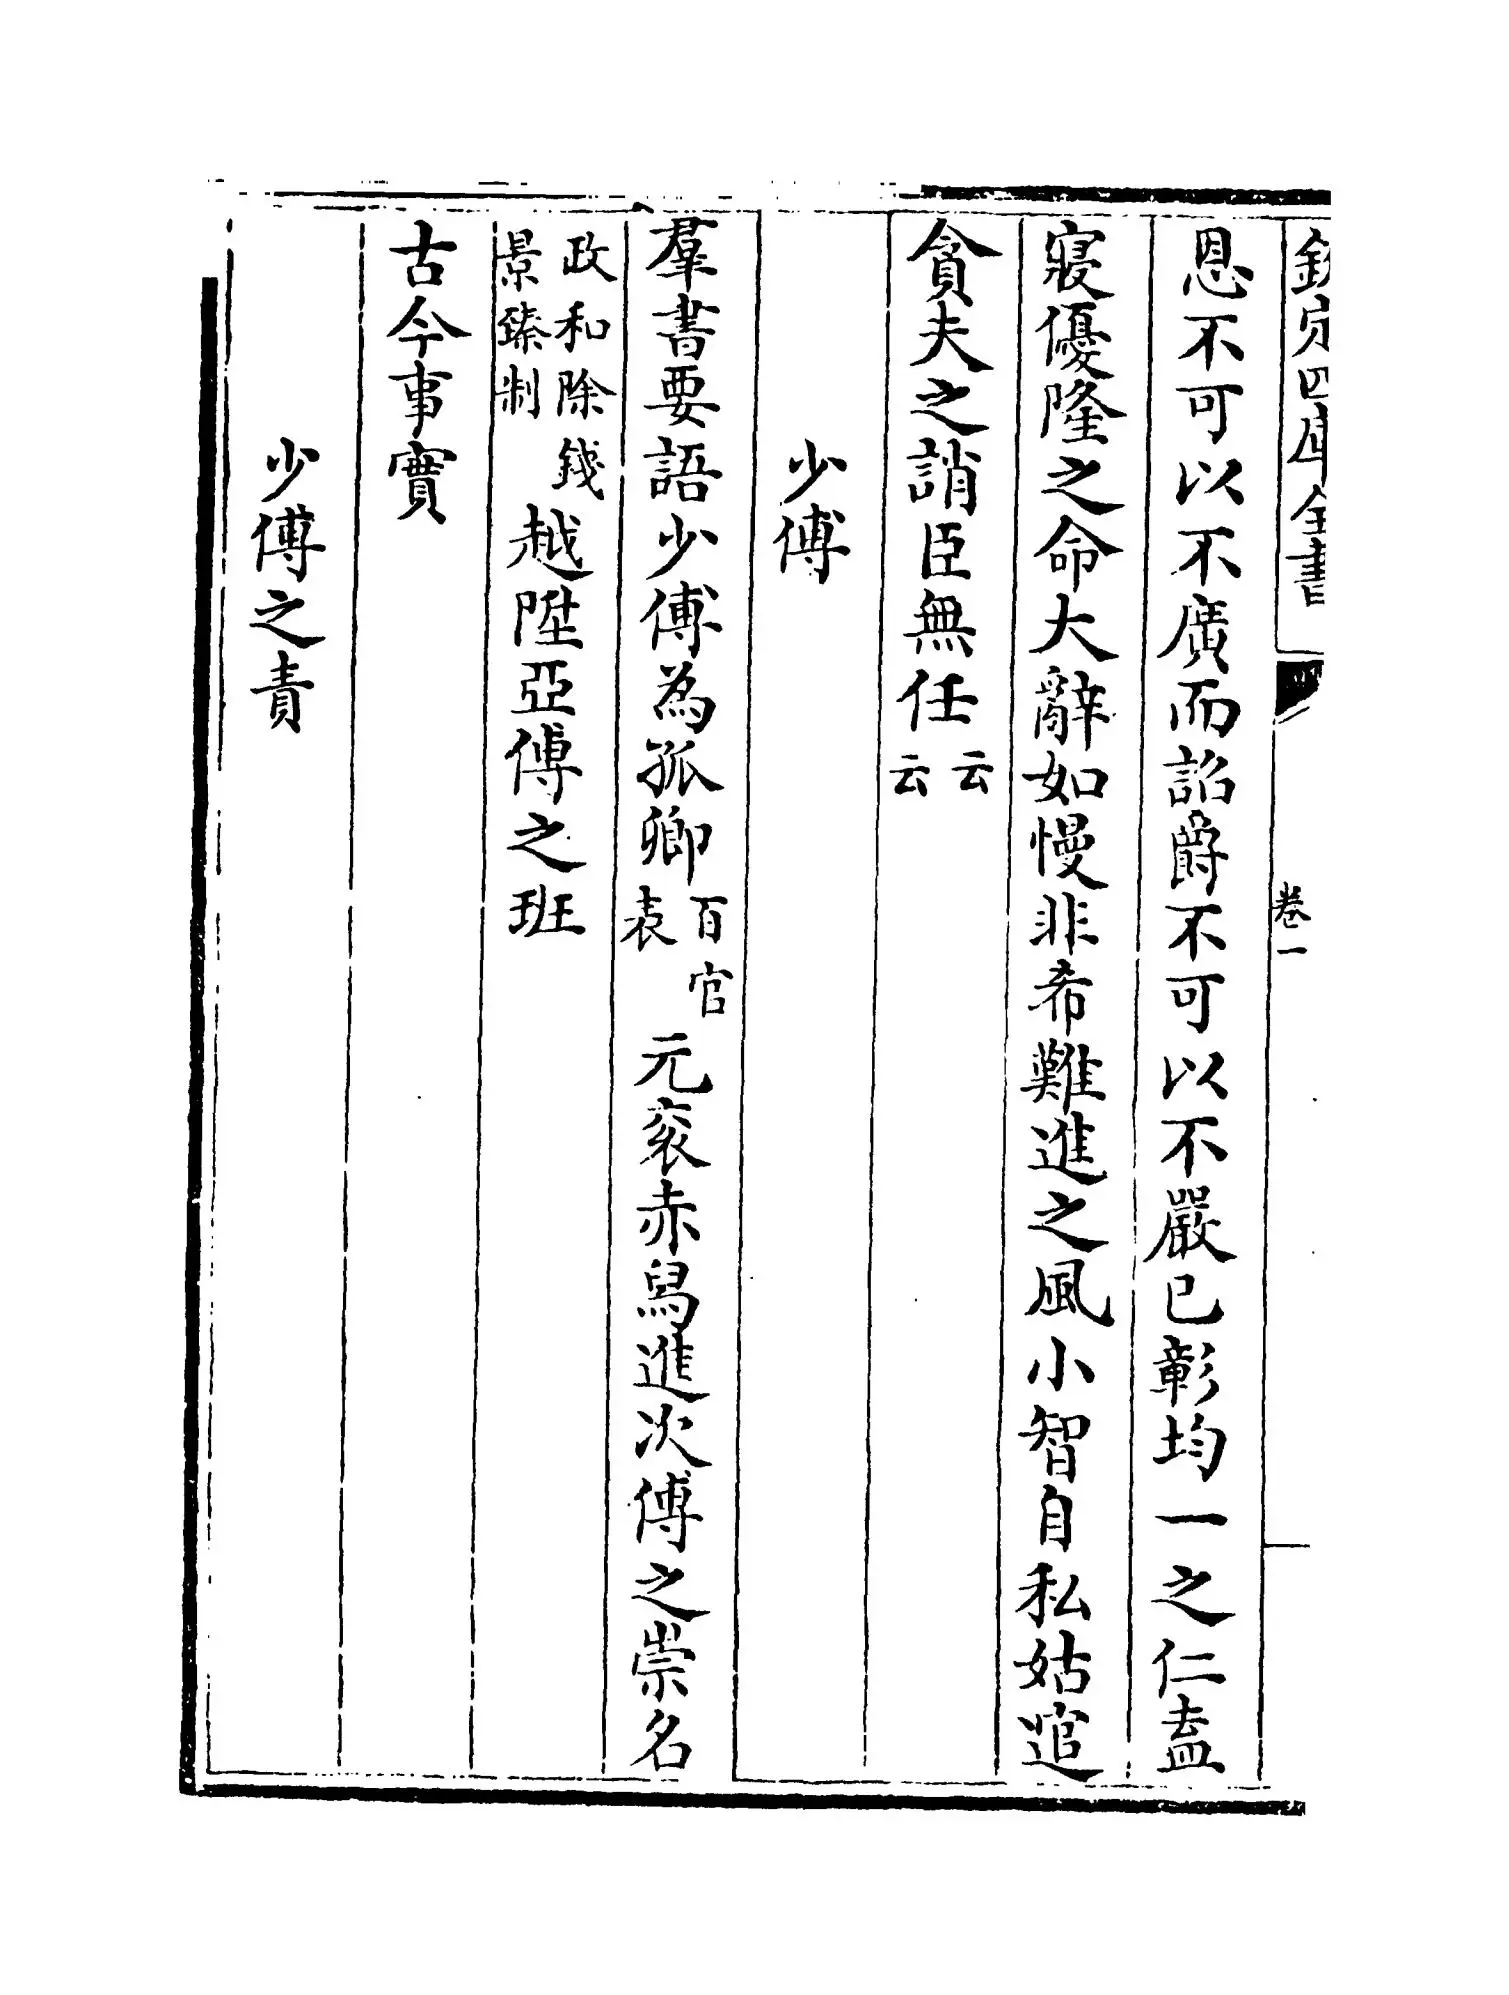 欽定四庫全書
卷一
恩不可以不廣而詔爵不可以不嚴已彰均一之仁盍
寢優隆之命大辭如慢非希難進之風小智自私姑逭
貪夫之誚臣無任云云
少傅
羣書要語少傅為孤卿百官表元衮赤舄進次傅之崇名
政和除錢景臻制越陞亞傅之班
古今事實
少傅之責